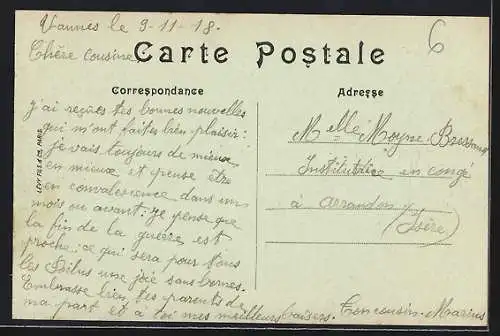 Vannes le 9-11-18.
6
Chère cousine
Carte Postale
Correspondance
Adresse
J'ai reçues tes bonnes nouvelles
qui m'ont faites bien plaisir:
je vais toujours de mieux
en mieux et pense être
en convalescence dans un
mois ou avant: je pense que
la fin de la guerre est
proche: ce qui sera pour tous
les Poilus une joie sans bornes.
Embrasse bien tes parents de
ma part et à toi mes meilleurs baisers. Ton cousin. Marius
LEVY FILS & Cie, PARIS
Melle Moyne-Bressand
Institutrice en congé
à Arandon
(Isère)